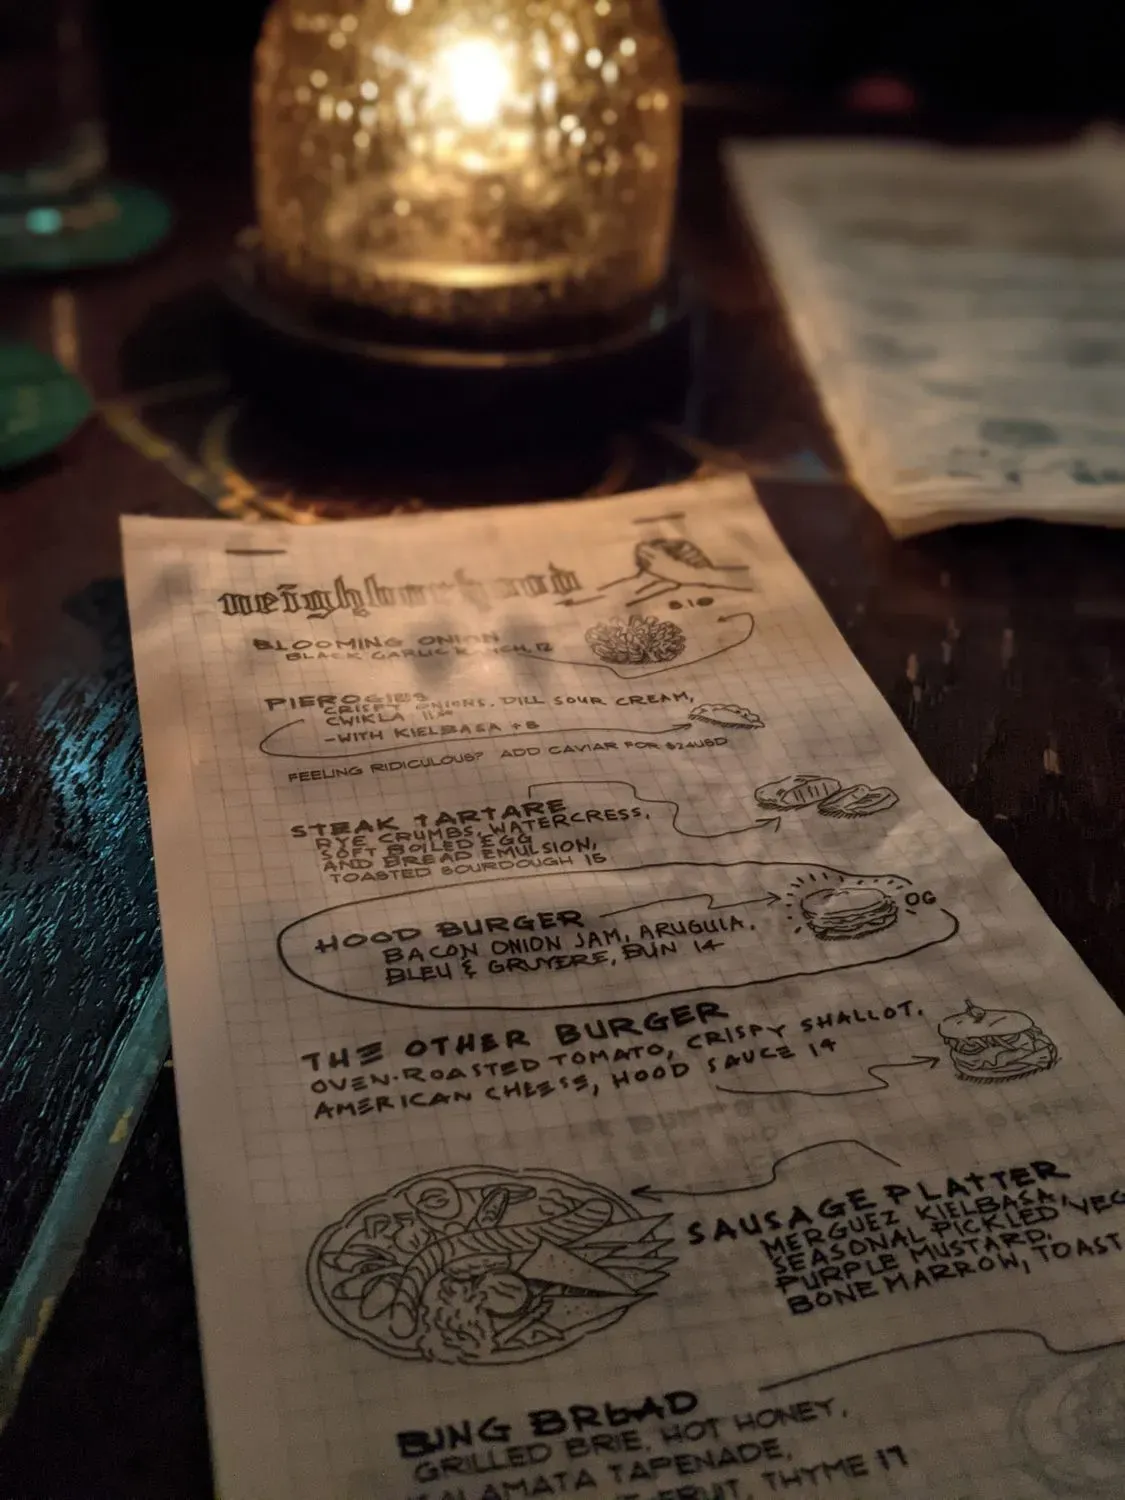 neighborhood
8.10
BLOOMING ONION
BLACK GARLIC RANCH, 12
PIEROGIES
CRISPY ONIONS, DILL SOUR CREAM,
CWIKLA
-WITH KIELBASA +8
FEELING RIDICULOUS? ADD CAVIAR FOR $24USD
STEAK TARTARE
RYE CRUMBS, WATERCRESS,
SOFT BOILED EGG
AND BREAD EMULSION,
TOASTED SOURDOUGH 15
HOOD BURGER
OG
BACON ONION JAM, ARUGULA,
BLEU & GRUYERE, BUN 14
THE OTHER BURGER
OVEN-ROASTED TOMATO, CRISPY SHALLOT,
AMERICAN CHEESE, HOOD SAUCE 14
SAUSAGE PLATTER
MERGUEZ, KIELBASA,
SEASONAL PICKLED VEG
PURPLE MUSTARD,
BONE MARROW, TOAST
BING BREAD
GRILLED BRIE, HOT HONEY,
KALAMATA TAPENADE,
FRUIT, THYME 17